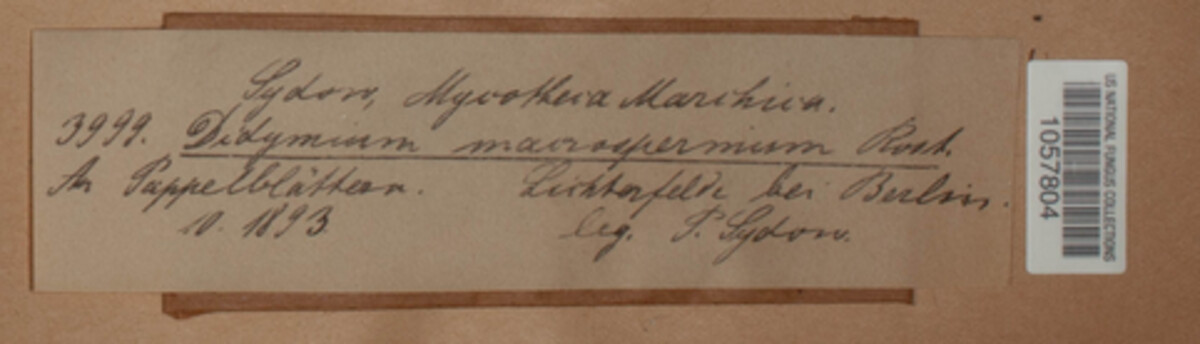 Sydow, Mycotheca Marchica.
3999. Didymium macrospermum Rost.
An Pappelblättern. Lichterfelde bei Berlin.
10. 1893. leg. P. Sydow.
US NATIONAL FUNGUS COLLECTIONS
1057804